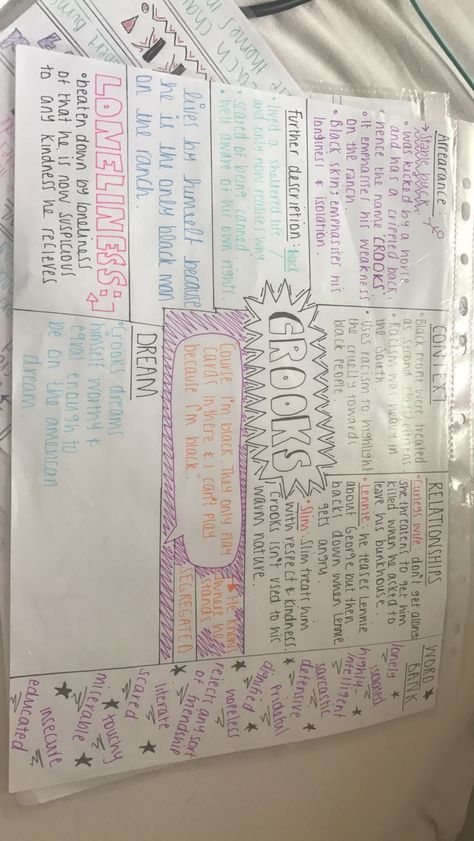 Appearance:
→ Stable buck.
• was kicked by a horse
and has a crippled back
hence the name 'CROOKS'
• it emphasise his weakness
on the ranch.
• Black skin: emphasises his
longiness & isolation.
CONTEXT
• Black people were treated
as second class citizens
• Racism was heavy in
the South
• Uses racism to highlight
the cruelty towards
black people.
RELATIONSHIPS
• Curley's wife: don't get along
she threatens to get him
killed when he asked to
leave his bunkhouse.
• Lennie: he teases Lennie
about George but then
backs down when Lennie
gets angry.
• Slim: Slim treats him
with respect & kindness
Crooks isn't used to his
warm nature.
WORD
BANK
lonely
isolated
highly-
intelligent
sarcastic
defensive
prideful
dignified
hopeless
rejects any sort
of friendship
literate
scared
touchy
miserable
insecure
educated
Further description:
• lived a sheltered life
and only now realises why
scared of being canned
well aware of his own rights.
lives by himself because
he is the only black man
on the ranch.
CROOKS
Course I'm black. They only play
cards in there & I can't play
because I'm black.
He knows
where he
stands
SEGREGATED
LONELINESS:
• beaten down by loneliness
of that he is now suspicious
to any kindness he recieves
DREAM
• Crooks dreams
himself worthy &
equal enough to
be on the american
dream.